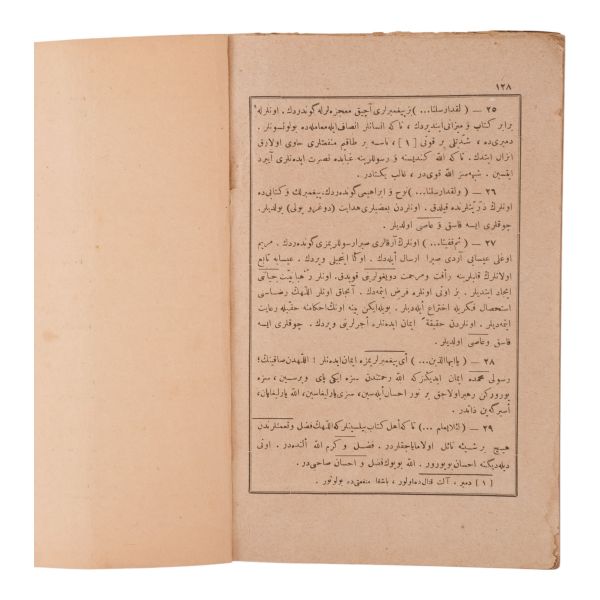 ١٢٨
٢٥ — ( لقدارسلنا... ) بز پیغمبرلری آچیق معجزه لرله كوندردك . اونلرله
برابر كتاب و میزانی ایندیردك ، تاكه انسانلر انصاف ایله معامله ده بولونسونلر .
دمیری ده ، شدتلی بر قوتی [ ١ ] ، ناسه بر طاقم منفعتلری حاوی اولارق
انزال ایتدك . تاكه الله كندیسنه و رسوللرینه غیابده نصرت ایده نلری آییرد
ایتسین . شبهه سز الله قوی در ، غالب یكتادر .
٢٦ — ( ولقدارسلنا... ) نوح و ابراهیمی كوندردك . پیغمبرلك و كتابی ده
اونلرك ذریتلرنده قیلدق . اونلردن بعضیلری هدایت (دوغرو یولی) بولدیلر .
چوقلری ایسه فاسق و عاصی اولدیلر .
٢٧ — ( ثم قفینا... ) اونلرك آرقالری صیرا رسوللریمزی كوندردك . مریم
اوغلی عیسایی آردی صیرا ارسال ایله دك . اوكا انجیلی ویردك . عیسایه تابع
اولانلرك قلبلرینه رأفت ومرحمت دویغولرینی قویدق . اونلر رهبانیت حیاتنی
ایجاد ایتدیلر . بز اونی اونلره فرض ایتمه دك . آنجاق اونلر اللهك رضاسی
استحصال فكریله اختراع ایله دیلر . بویله ایكن ینه اونك احكامنه حقیله رعایت
ایتمه دیلر . اونلردن حقیقة ایمان ایده نلره اجرلرینی ویردك . چوقلری ایسه
فاسق وعاصی اولدیلر .
٢٨ — ( یاایهاالذین... ) أی پیغمبرلریمزه ایمان ایده نلر ! اللهدن صاقینك ؛
رسولی محمده ایمان ایدیكز كه الله رحمتندن سزه ایكی پای ویرسین ، سزه
یورورکن رهبر اولاجق بر نور احسان ایله سین ، سزی یارلیغاسین ، الله یارلیغایان ،
أسیرگه ین ذاتدر .
٢٩ — ( لئلایعلم ... ) تاكه أهل كتاب بیلسینلر كه اللهك فضل ونعمتلرندن
هیچ بر شیئه نائل اولامایاجقلردر . فضل و كرم الله ألنده در . اونی
دیله دیگنه احسان بویورور . الله بویوك فضل و احسان صاحبی در .
[ ١ ] دمیر ، آلت قتال ده اولور ، باشقا منفعتی ده بولونور .